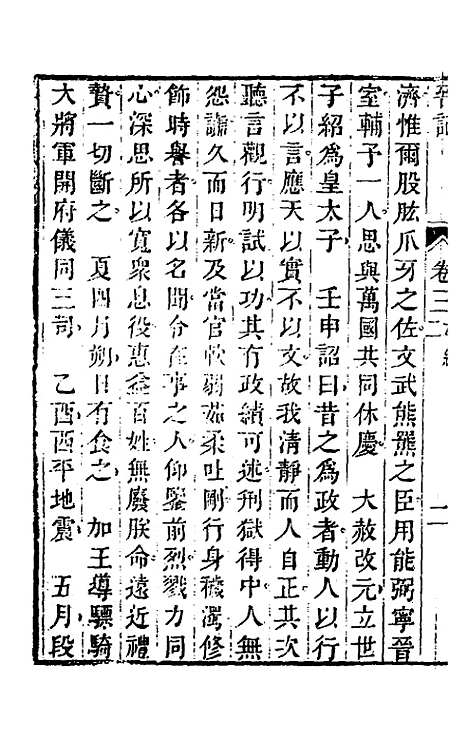 晉記 卷三 二
濟惟爾股肱爪牙之佐文武熊羆之臣用能弼寧晉
室輔予一人思與萬國共同休慶 大赦改元立世
子紹爲皇太子 壬申詔曰昔之爲政者動人以行
不以言應天以實不以文故我清靜而人自正其次
聽言觀行明試以功其有政績可述刑獄得中人無
怨讟久而日新及當官軟弱茹柔吐剛行身穢濁修
飾時譽者各以名聞令在事之人仰鑒前烈戮力同
心深思所以寬衆息役惠益百姓無廢朕命遠近禮
贄一切斷之 夏四月朔日有食之 加王導驃騎
大將軍開府儀同三司 乙酉西平地震 五月段